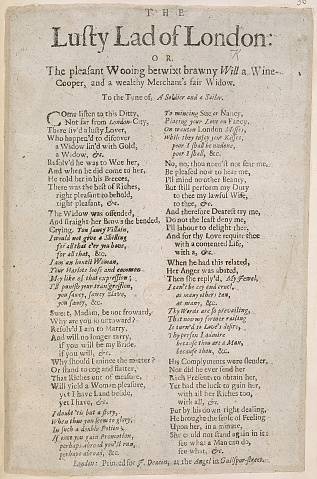 THE
Lusty Lad of London:
OR,
The pleasant Wooing betwixt brawny Will a Wine-
Cooper, and a wealthy Merchant's fair Widow.
To the Tune of, A Soldier and a Sailor.
COme listen to this Ditty,
Not far from London-City,
There liv'd a lusty Lover,
Who happen'd to discover
a Widow lin'd with Gold,
a Widow, &c.
Resolv'd he was to Woe her,
And when he did come to her,
He told her in his Breeces,
There was the best of Riches,
right pleasant to behold,
right pleasant, &c.
The Widow was offended,
And straight her Brows she bended,
Crying, You saucy Villain,
I would not give a Shilling
for all that e'er you have,
for all that, &c.
I am no lewd Woman,
Your Harlots loose and common
May like of that expression;
I'll punish your transgression,
you saucy, saucy Slave,
you saucy, &c.
Sweet, Madam, be not froward,
Why are you so untoward?
Resolv'd I am to Marry,
And will no longer tarry,
if you will be my Bride,
if you will, &c.
Why should I mince the matter?
Or stand to cog and flatter,
That Riches out of measure,
Will yield a Woman pleasure,
yet I have Land beside,
yet I have, &c.
I doubt 'tis but a story,
When thus you seem to glory,
In such a double Potion;
If once you gain Promotion,
perhaps abroad you'll run,
perhaps abroad, &c.
To mincing Sue or Nancy,
Placing your Love on Fancy,
On wanton London Misses,
While they enjoy your Kisses,
poor I shall be undone,
poor I shall, &c.
No, no, thou need'st not fear me,
Be pleased now to hear me,
I'll mind no other Beauty,
But still perform my Duty
to thee my lawful Wife,
to thee, &c.
And therefore Dearest try me,
Do not the least deny me,
I'll labour to delight thee,
And for thy Love requite thee
with a contented Life,
with a, &c.
When he had this related,
Her Anger was abated,
Then she reply'd, My Jewel,
I can't be coy and cruel,
as many others can,
as many, &c.
Thy Words are so prevailing,
That now my former railing
Is turn'd to Love's desire,
Thy person I admire
because thou art a Man,
because thou, &c.
His Complyments were slender,
Nor did he ever send her
Rich Presents to obtain her,
Yet had the luck to gain her,
with all her Riches too,
with all, &c.
For by his down right dealing,
He brought the sense of Feeling
Upon her, in a minute,
She could not stand again in it:
see what a Man can do,
see what, &c.
London: Printed for J. Deacon, at the Angel in Guiltspur-street.